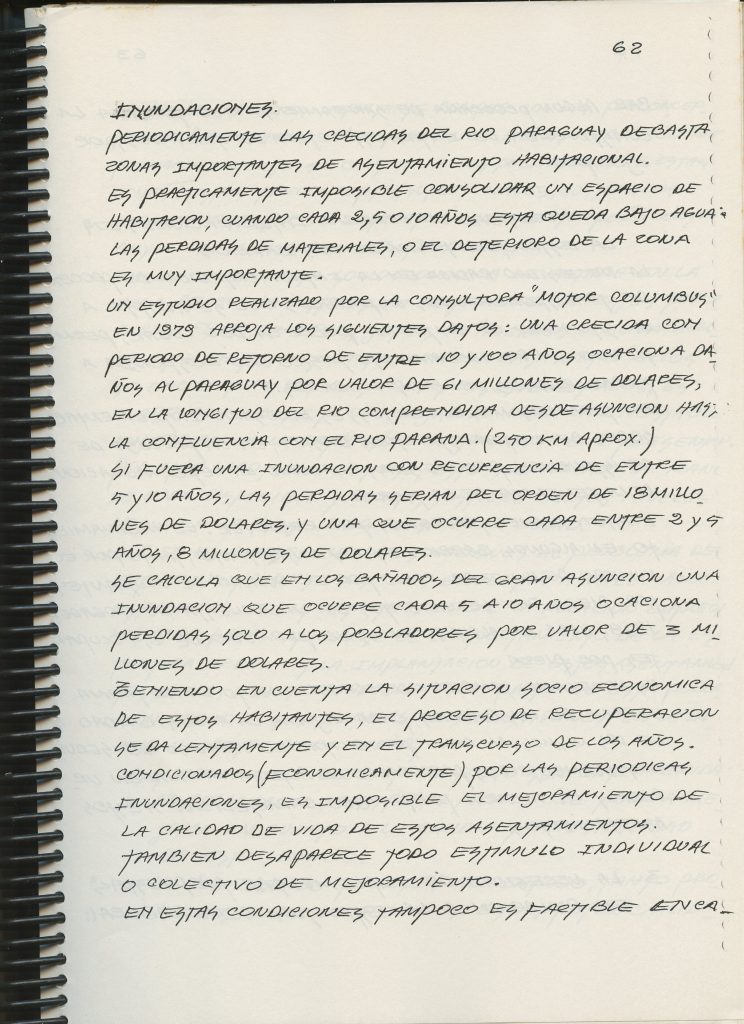 62
INUNDACIONES.
PERIODICAMENTE LAS CRECIDAS DEL RIO PARAGUAY DEBASTA
ZONAS IMPORTANTES DE ASENTAMIENTO HABITACIONAL.
ES PRACTICAMENTE IMPOSIBLE CONSOLIDAR UN ESPACIO DE
HABITACION, CUANDO CADA 2, 5 O 10 AÑOS ESTA QUEDA BAJO AGUA.
LAS PERDIDAS DE MATERIALES, O EL DETERIORO DE LA ZONA
ES MUY IMPORTANTE.
UN ESTUDIO REALIZADO POR LA CONSULTORA "MOTOR COLUMBUS"
EN 1979 ARROJA LOS SIGUIENTES DATOS: UNA CRECIDA CON
PERIODO DE RETORNO DE ENTRE 10 Y 100 AÑOS OCACIONA DA_
ÑOS AL PARAGUAY POR VALOR DE 61 MILLONES DE DOLARES,
EN LA LONGITUD DEL RIO COMPRENDIDA DESDE ASUNCION HAS_
LA CONFLUENCIA CON EL RIO PARANA. (250 KM APROX.)
SI FUERA UNA INUNDACION CON RECURRENCIA DE ENTRE
5 Y 10 AÑOS, LAS PERDIDAS SERIAN DEL ORDEN DE 18 MILLO_
NES DE DOLARES. Y UNA QUE OCURRE CADA ENTRE 2 Y 5
AÑOS, 8 MILLONES DE DOLARES.
SE CALCULA QUE EN LOS BAÑADOS DEL GRAN ASUNCION UNA
INUNDACION QUE OCURRE CADA 5 A 10 AÑOS OCACIONA
PERDIDAS SOLO A LOS POBLADORES POR VALOR DE 3 MI_
LLONES DE DOLARES.
TENIENDO EN CUENTA LA SITUACION SOCIO ECONOMICA
DE ESTOS HABITANTES, EL PROCESO DE RECUPERACION
SE DA LENTAMENTE Y EN EL TRANSCURSO DE LOS AÑOS.
CONDICIONADOS (ECONOMICAMENTE) POR LAS PERIODICAS
INUNDACIONES, ES IMPOSIBLE EL MEJORAMIENTO DE
LA CALIDAD DE VIDA DE ESTOS ASENTAMIENTOS.
TAMBIEN DESAPARECE TODO ESTIMULO INDIVIDUAL
O COLECTIVO DE MEJORAMIENTO.
EN ESTAS CONDICIONES TAMPOCO ES FACTIBLE ENCA_